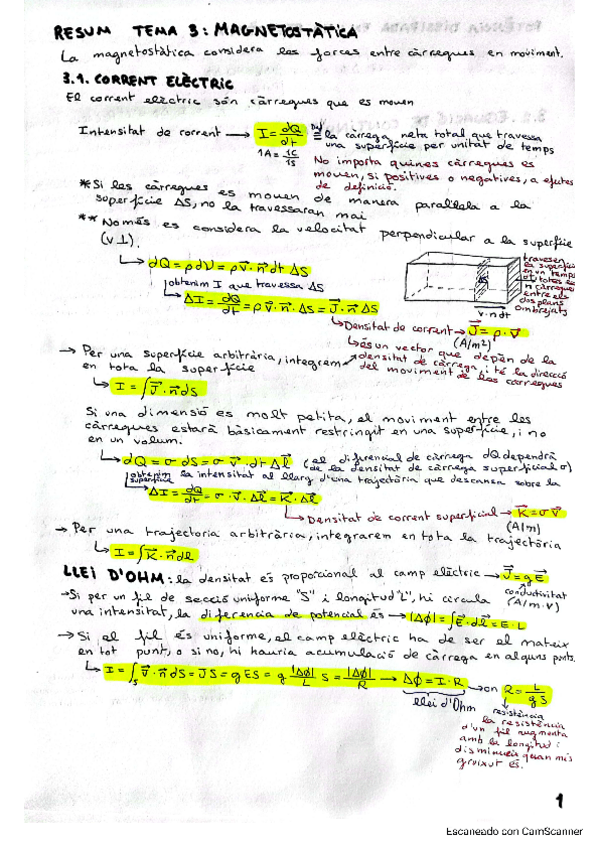 RESUM TEMA 3: MAGNETOSTÀTICA
La magnetostàtica considera les forces entre càrreques en moviment.
3.1. CORRENT ELÈCTRIC
El corrent elèctric són càrreques que es mouen
Intensitat de corrent → I = dQ/dt ≝ la càrrega neta total que travessa
una superfície per unitat de temps
1A = 1C/1s
No importa quines càrregues es
mouen, si positives o negatives, a efectes
de definició.
*Si les càrregues es mouen de manera paral·lela a la
superfície ΔS, no la travessaran mai
**Només es considera la velocitat perpendicular a la superfície
(v⊥).
↳ dQ = ρdV = ρv⃗·n⃗dt ΔS
obtenim I que travessa ΔS
↳ ΔI = dQ/dt = ρv⃗·n⃗·ΔS = J⃗·n⃗ΔS
travessen
la superfície
en un temps
dt totes les
càrregues
entre els
dos plans
ombrejats
ΔS
v·n dt
↳ Densitat de corrent → J⃗ = ρ·v⃗
(A/m²)
↳ és un vector que depèn de la
densitat de càrrega, i té la direcció
del moviment de les càrregues
→ Per una superfície arbitrària, integrem
en tota la superfície
↳ I = ∫J⃗·n⃗dS
Si una dimensió es molt petita, el moviment entre les
càrregues estarà bàsicament restringit en una superfície, i no
en un volum.
↳ dQ = σdS = σv⃗·dtΔl⃗ (el diferencial de càrrega dQ dependrà
de la densitat de càrrega superficial σ)
obtenim la intensitat al llarg d'una trajectòria que descansa sobre la
superfície
↳ ΔI = dQ/dt = σ·v⃗·Δl⃗ = K⃗·Δl⃗
↳ Densitat de corrent superficial → K⃗ = σv⃗
(A/m)
→ Per una trajectoria arbitrària, integrarem en tota la trajectòria
↳ I = ∫K⃗·n⃗dl
LLEI D'OHM: la densitat és proporcional al camp elèctric → J⃗ = gE⃗
conductivitat
(A/m·V)
→ Si per un fil de secció uniforme "S" i longitud "L", hi circula
una intensitat, la diferencia de potencial és → |Δϕ| = ∫E⃗·dl⃗ = E·L
→ Si el fil és uniforme, el camp elèctric ha de ser el mateix
en tot punt, o si no, hi hauria acumulació de càrrega en alguns punts.
↳ I = ∫ₛ v⃗·n⃗dS = JS = gES = g |Δϕ|/L S = |Δϕ|/R → Δϕ = I·R → on R = L/gS
llei d'Ohm
resistència
la resistència
d'un fil augmenta
amb la longitud i
disminueix quan més
gruixut és.
1
Escaneado con CamScanner